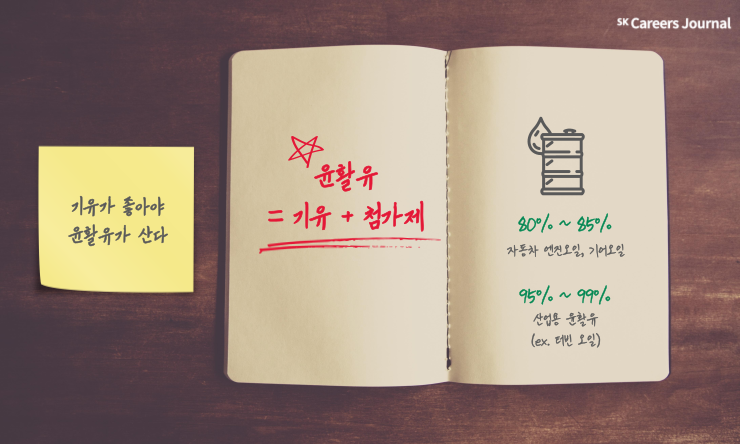 SK Careers Journal
기유가 좋아야
윤활유가 산다
윤활유
= 기유 + 첨가제
80% ~ 85%
자동차 엔진오일, 기어오일
95% ~ 99%
산업용 윤활유
(ex. 터빈 오일)